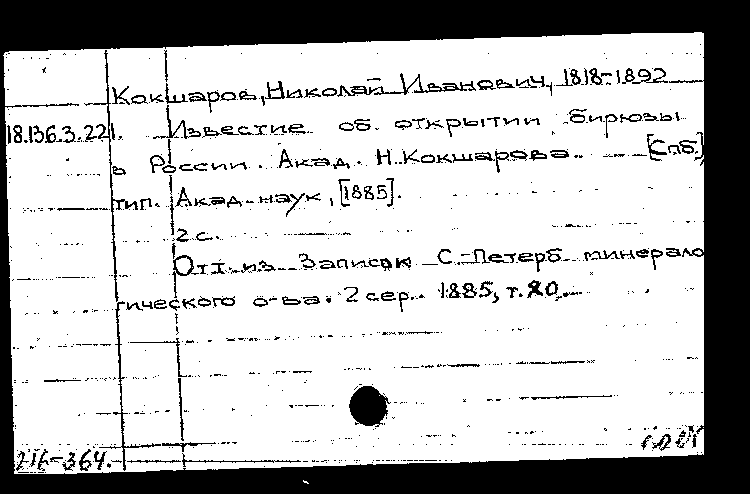 Кокшаров, Николай Иванович, 1818-1892
18.136.3.221. Известие об открытии бирюзы
в России. Акад. Н. Кокшарова. — [Спб.]
тип. Акад. наук, [1885].
2 с.
Отт. из Записок С.-Петерб. минерало
гического о-ва. 2 сер. 1885, т. 20.
216-364.